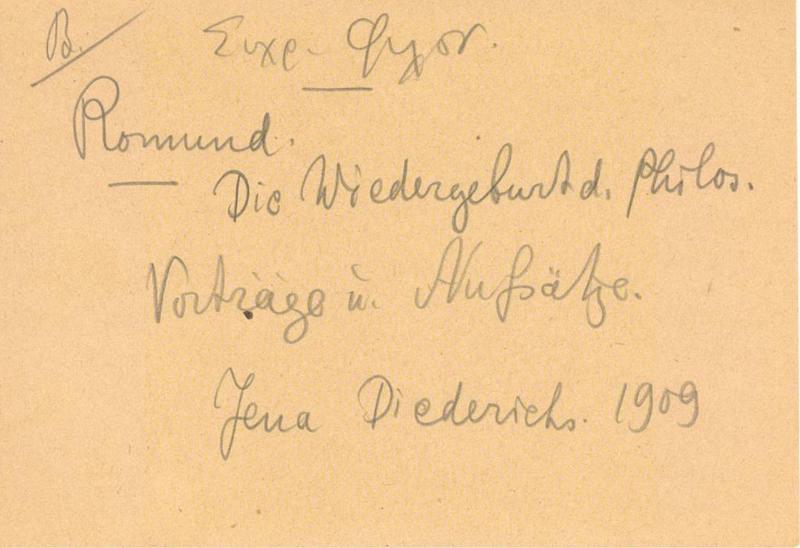 B./
Romund.
Die Wiedergeburt d. Philos.
Vorträge u. Aufsätze.
Jena Diederichs. 1909